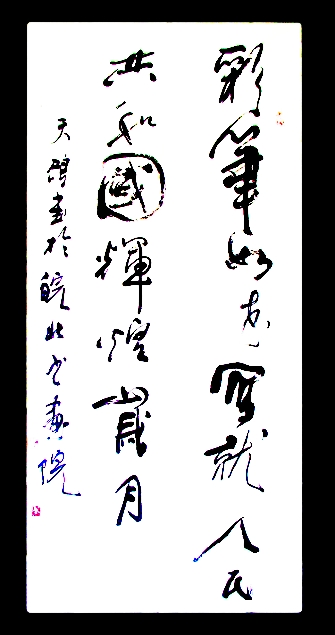 彩筆如寫就人民
共和國輝煌歲月
天書於皖北书畫院